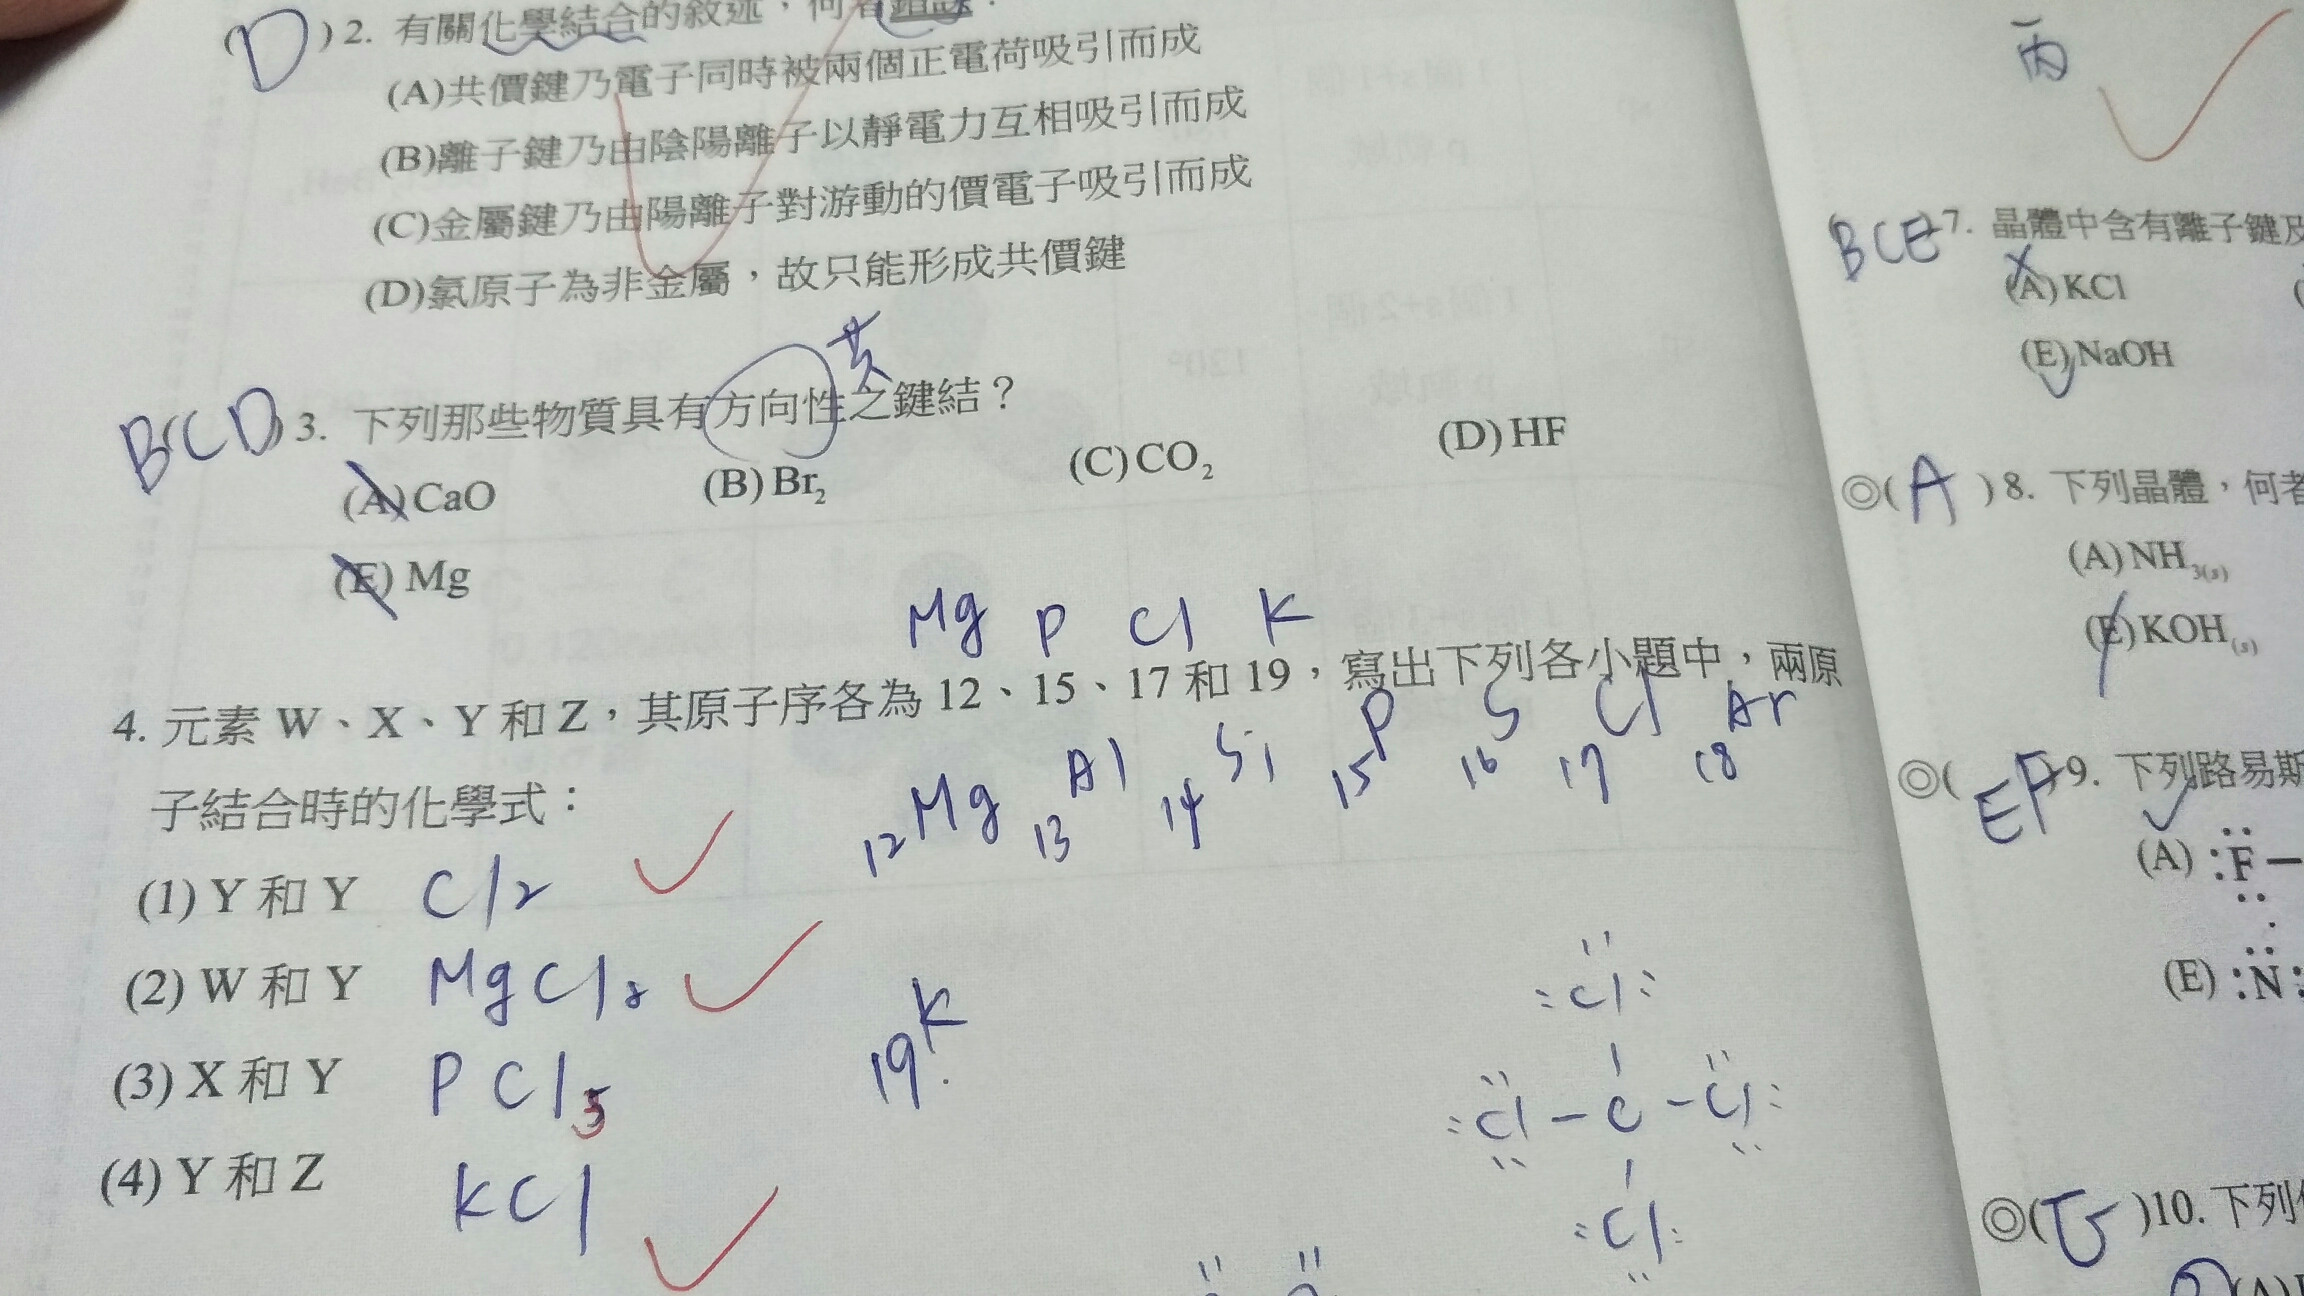 (D)2. 有關化學結合的敘述，何者錯誤？
(A)共價鍵乃電子同時被兩個正電荷吸引而成
(B)離子鍵乃由陰陽離子以靜電力互相吸引而成
(C)金屬鍵乃由陽離子對游動的價電子吸引而成
(D)氯原子為非金屬，故只能形成共價鍵
共
BCD 3. 下列那些物質具有方向性之鍵結？
(A)CaO (B)Br₂ (C)CO₂ (D)HF
(E)Mg
Mg P Cl K
4. 元素 W、X、Y 和 Z，其原子序各為 12、15、17 和 19，寫出下列各小題中，兩原
子結合時的化學式：
12Mg 13Al 14Si 15P 16S 17Cl 18Ar
(1) Y 和 Y Cl₂
(2) W 和 Y MgCl₂
(3) X 和 Y PCl
(4) Y 和 Z KCl
19K
Cl
Cl－C－Cl
Cl
丙
BCE 7. 晶體中含有離子鍵及
(A)KCl
(E)NaOH
◎(A)8. 下列晶體，何者
(A)NH₃(s)
(E)KOH(s)
◎(EF)9. 下列路易斯
(A) :F－
(E) :N:
◎( )10. 下列